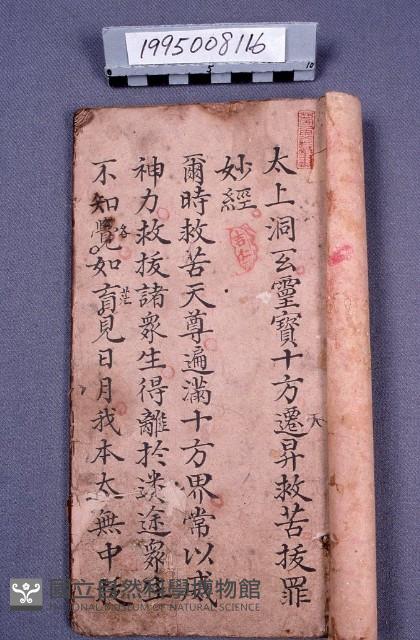 1995008116
0
5
10
太上洞玄靈寶十方遷昇救苦拔罪
天
妙經
爾時救苦天尊遍滿十方界常以威
神力救拔諸眾生得離於迷途眾生
不知覺如盲見日月我本太無中拔
國立自然科學博物館
NATIONAL MUSEUM OF NATURAL SCIENCE